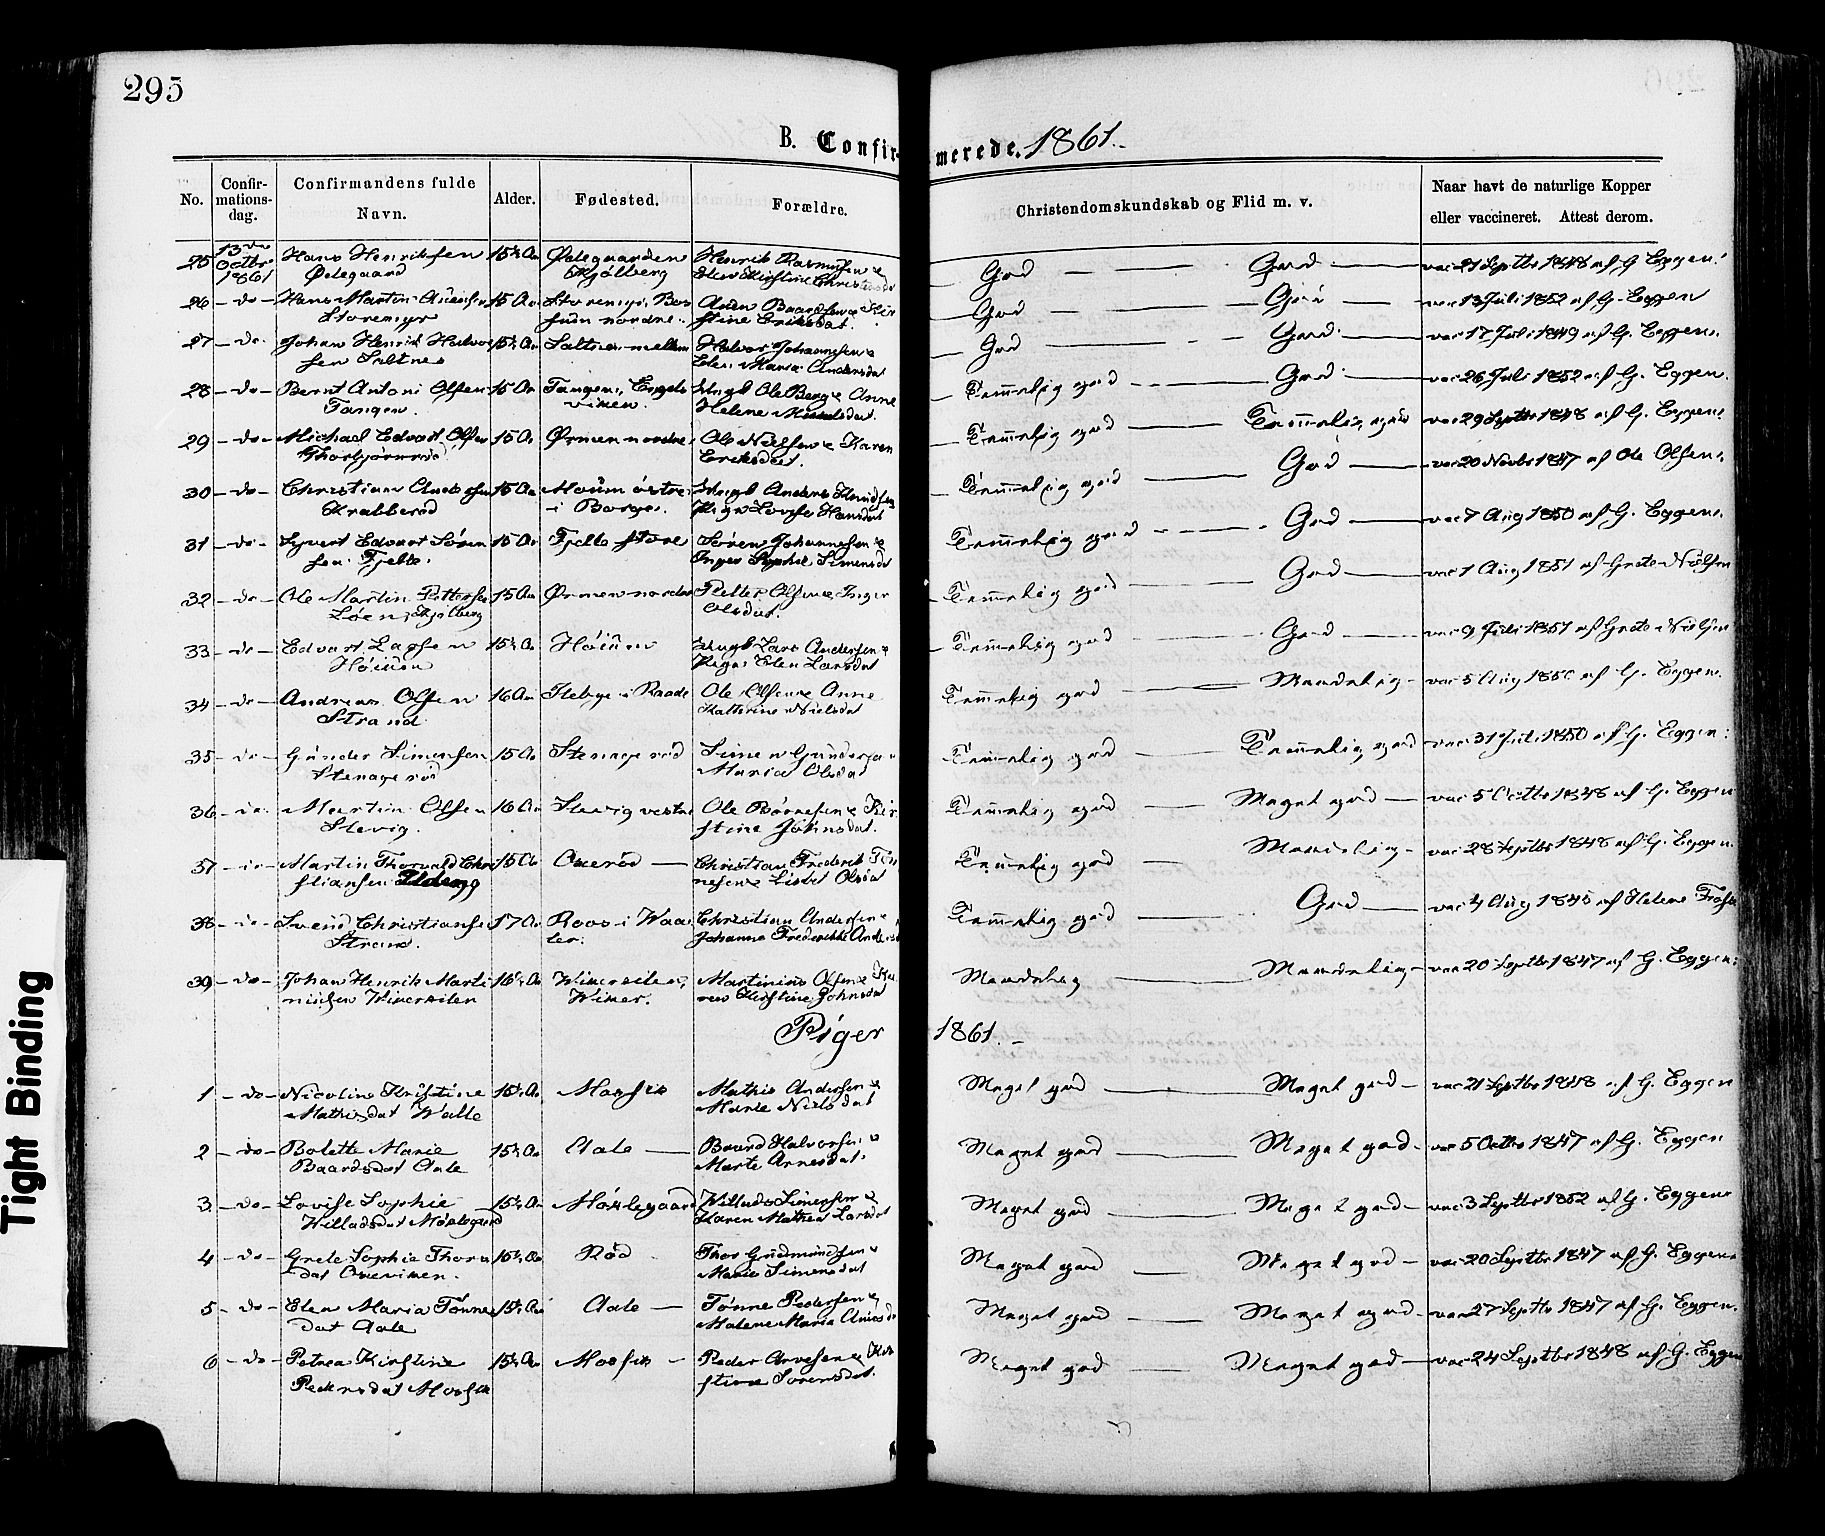 295
B. Confir- merede. 1861.
No. Confirmations-dag. Confirmandens fulde Navn. Alder. Fødested. Forældre. Christendomskundskab og Flid m. v. Naar havt de naturlige Kopper eller vaccineret. Attest derom.
25 13de Octbr 1861 Hans Henriksen Ødegaard 15½ Aar Ødegaarden Skjølberg Henrik Rasmussen & Kirstine God — God vac 21 Septbr 1848 af G. Eggen.
26 — do — Hans Martin Storemyr 15 Aar Storemyr, nordre Baardsen & Kirstine Eriksdat. God — God vac 13 Juli 1852 af G. Eggen
27 — do Johan Henrik Halvorsen Saltnes 15½ Aar Saltnes mellem Halvor Johannesen & Maria Andersdat God — God vac 17 Juli 1849 af G. Eggen.
28 — do — Bernt Anton Olsen Tangen 15 Aar Tangen, Engelsviken Ungk Ole Berg & Anne Helene Temmelig god — God vac 26 Juli 1852 af G. Eggen.
29 — do — Michael Edvart Olsen Thorbjørnrød 15 Aar Ørmen nordre Ole Nilssen & Karen Eriksdat. Temmelig god — Temmelig god vac 29 Septbr 1848 af G. Eggen
30 — do — Christian Krabberød 15 Aar Moum østre i Borge. Ungk Anders & Pige Lovise Hansdat Temmelig god — God vac 20 Novbr 1847 af Ole Olsen.
31 — do — Syvert Edvart Sørensen Fjelle 15 Aar Fjelle store Søren Johannesen & Inger Sophie Simensdat Temmelig god — God vac 7 Aug 1850 af G. Eggen.
32 — do — Ole Martin Pettersen Løen, Skjølberg 15 Aar Ørmen nordre Petter Olsen & Inger Olsdat. Temmelig god — God vac 1 Aug 1851 af Grete Nilsen
33 — do — Edvart Larsen Høiûen 15½ Aar Høiûen Ungk Lars Andersen & Pige Elen Larsdat Temmelig god — God vac 9 Juli 1851 af Grete Nielsen
34 — do — Andreas Olsen Strand 16 Aar Slebye i Raade Ole Olsen & Anne Katterine Nielsdat Temmelig god — Maadelig vac 5 Aug af G. Eggen.
35 — do — Gunder Simensen Stenagerød 15 Aar Stenagerød Simen Gundersen Maria Olsdat Temmelig god — Temmelig god vac 31 Juli 1850 af G. Eggen
36 — do Martin Olsen Slevig. 16 Aar Slevig vestre Ole & Kirstine Johnsdat. Temmelig god — Meget god vac 5 Octbr 1848 af G. Eggen
37 — do — Martin Thorvald Christiansen 15 Aar Ouerød Christian Frederik Tønnesen & Lisbet Olsdat Temmelig god — Maadelig vac 28 Septbr 1848 af G. Eggen.
38 — do — Svend Christiansen Strand. 17 Aar Roos i Waaler. Christian Andersen & Johanne Frederikke Temmelig god — God vac 4 Aug af Helene
39 — do — Johan Henrik Martiniusen Wikersilen 16½ Aar Wikersilen, Wiker. Martinius Olsen & Karen Kirstine Johnsdat Maadelig — Maadelig vac 20 Septbr 1847 af G. Eggen.
Piger 1861.
1 — do — Nicoline Kristine Mathisdat Walle 15½ Aar Mathis Andersen & Marie Nielsdat Meget god — Meget god vac 21 Septbr 1848 af G. Eggen
2 — do — Bolette Marie Baardsdat Aale 15½ Aar Aale Baard Halvorsen & Marte Arnesdat. Meget god — Meget god vac 5 Octbr 1847 af G. Eggen
3 — do — Lovise Sophie Willadsdat Mørlegaard 15½ Aar Mørlegaard Willads Simensen & Karen Mathea Larsdat Meget god — Meget god vac 3 Septbr 1852 af G. Eggen
4 — do — Grete Sophie Thorsdat Oueviken. 15½ Aar Rød Thor Gudmundsen & Marie Simensdat Meget god — Meget god vac 20 Septbr 1847 af G. Eggen
5 — do — Elen Maria Tønnesdat Aale 15½ Aar Aale Tønne Pedersen & Malene Maria Meget god — Meget god vac 27 Septbr 1847 af G. Eggen.
6 — do — Petrea Kirstine Pedersdat 15½ Aar Peder Arvesen & Kirstine Sørensdat. Meget god — Meget god vac 24 Septbr 1848 af G. Eggen
Tight Binding